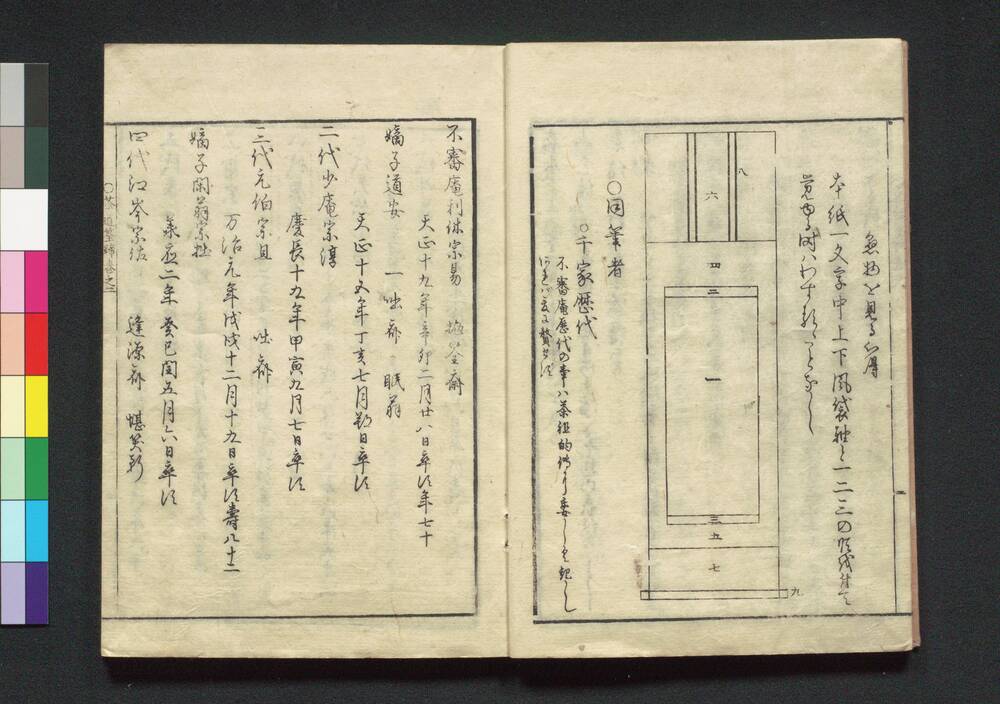 掛物を見る心得
本紙一文字中上下風袋軸と一二三の順
覚ゆる時ハわすれることなし
八
六
四
二
一
三
五
七
九
〇同筆者
〇千家歴代
不審菴歴代の事ハ茶祖的伝
不審菴利休宗易 抛筌斎
天正十九年辛卯二月廿八日卒行年七十
嫡子道安 一咄斎 眠翁
天正十五年丁亥七月 日卒
二代少庵宗淳
慶長十九年甲寅九月七日卒
三代元伯宗旦 咄斎
万治元年戊戌十二月十九日卒 寿八十一
嫡子閑翁宗拙
承応二年 癸巳閏五月六日卒
四代江岑宗左 逢源斎